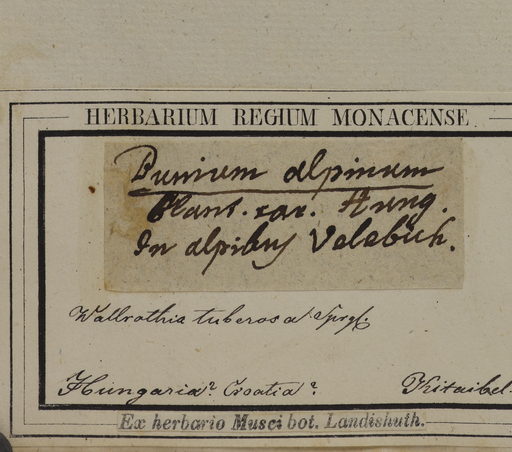 HERBARIUM REGIUM MONACENSE
Bunium alpinum
Plant. rar. Hung.
In alpibus Velebich.
Wallrothia tuberosa Sprgl.
Hungaria? Croatia? Kitaibel.
Ex herbario Musei bot. Landishuth.